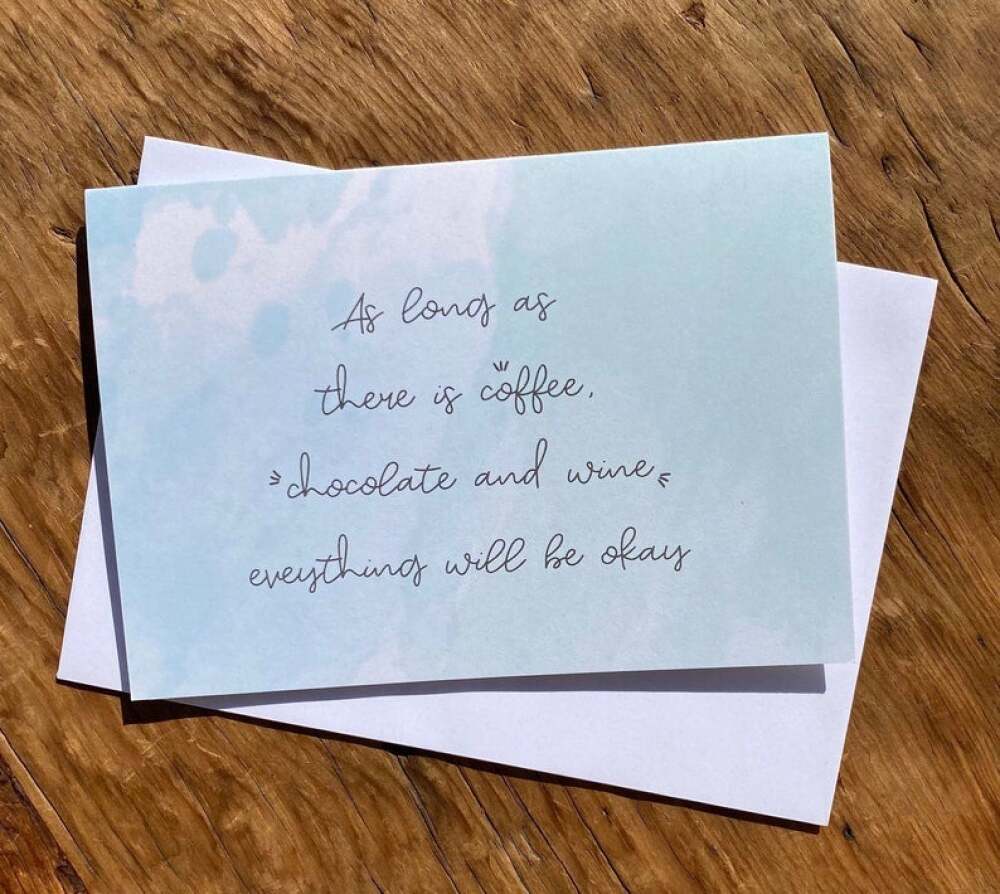 As long as
there is coffee,
chocolate and wine
eveything will be okay